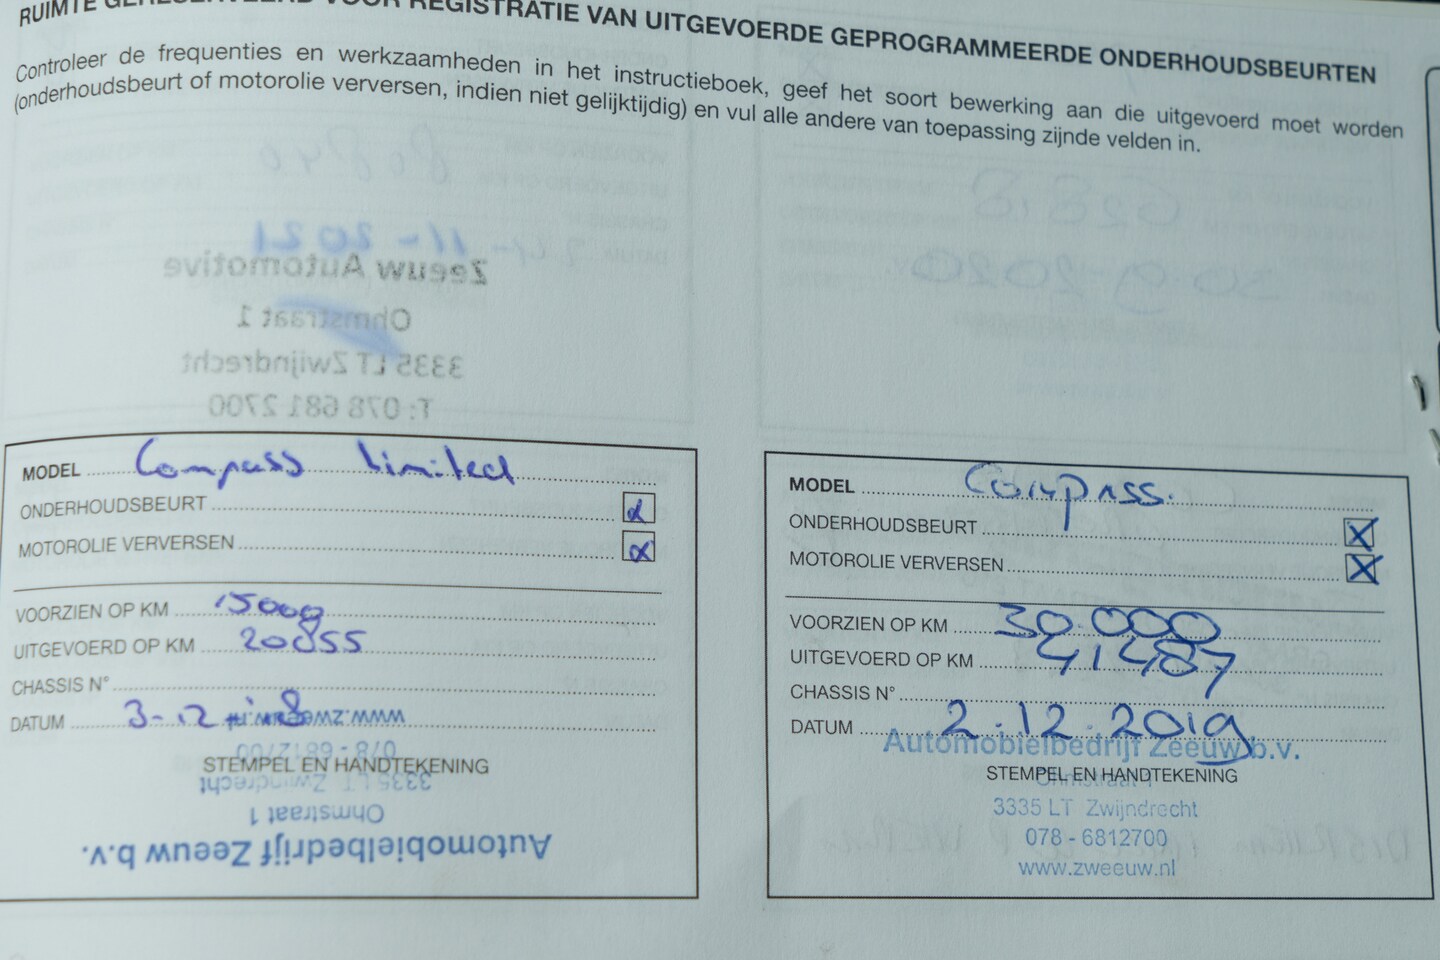 RUIMTE GERESERVEERD VOOR REGISTRATIE VAN UITGEVOERDE GEPROGRAMMEERDE ONDERHOUDSBEURTEN
Controleer de frequenties en werkzaamheden in het instructieboek, geef het soort bewerking aan die uitgevoerd moet worden
(onderhoudsbeurt of motorolie verversen, indien niet gelijktijdig) en vul alle andere van toepassing zijnde velden in.
11-2021
Zeeuw Automotive
Ohmstraat 1
3335 LT Zwijndrecht
T: 078 681 2700
MODEL Compass Limited
ONDERHOUDSBEURT
MOTOROLIE VERVERSEN
VOORZIEN OP KM 15000
UITGEVOERD OP KM 20855
CHASSIS N°
DATUM 3-12
www.zweeuw.nl
078 - 6812700
STEMPEL EN HANDTEKENING
3335 LT Zwijndrecht
Ohmstraat 1
Automobielbedrijf Zeeuw b.v.
MODEL Compass.
ONDERHOUDSBEURT X
MOTOROLIE VERVERSEN X
VOORZIEN OP KM 30.000
UITGEVOERD OP KM 41487
CHASSIS N°
DATUM 2.12.2019
Automobielbedrijf Zeeuw b.v.
STEMPEL EN HANDTEKENING
Ohmstraat 1
3335 LT Zwijndrecht
078 - 6812700
www.zweeuw.nl